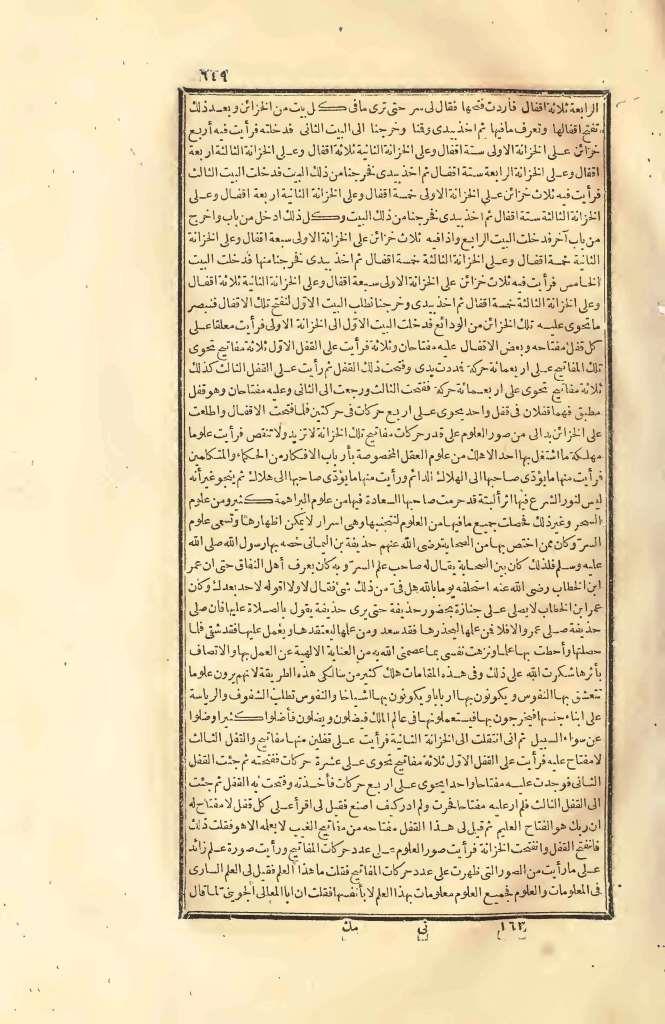 ٦٤٩
الرابعة ثلاثة اقفال فأردت فتحها فقال لى سر حتى ترى ما فى كل بيت من الخزائن وبعد ذلك
تفتح اقفالها وتعرف ما فيها ثم اخذ بيدى وقنا وخرجنا الى البيت الثانى فدخلته فرأيت فيه أربع
خزائن على الخزانة الاولى ستة اقفال وعلى الخزانة الثانية ثلاثة اقفال وعلى الخزانة الثالثة اربعة
اقفال وعلى الخزانة الرابعة ستة اقفال ثم اخذ بيدى فخرجنا من ذلك البيت فدخلت البيت الثالث
فرأيت فيه ثلاث خزائن على الخزانة الاولى خمسة اقفال وعلى الخزانة الثانية اربعة اقفال وعلى
الخزانة الثالثة ستة اقفال ثم اخذ بيدى فخرجنا من ذلك البيت وكل ذلك ادخل من باب واخرج
من باب آخر فدخلت البيت الرابع واذا فيه ثلاث خزائن على الخزانة الاولى سبعة اقفال وعلى الخزانة
الثانية خمسة اقفال وعلى الخزانة الثالثة خمسة اقفال ثم اخذ بيدى فخرجنا منها فدخلت البيت
الخامس فرأيت فيه ثلاث خزائن على الخزانة الاولى سبعة اقفال وعلى الخزانة الثانية ثلاثة اقفال
وعلى الخزانة الثالثة خمسة اقفال ثم اخذ بيدى وخرجنا نطلب البيت الاول لنفتح تلك الاقفال فنبصر
ما تحوى عليه تلك الخزائن من الودائع فدخلت البيت الاول الى الخزانة الاولى فرأيت معلقا على
كل قفل مفتاحه وبعض الاقفال عليه مفتاحان وثلاثة فرأيت على القفل الاول ثلاثة مفاتيح تحوى
تلك المفاتيح على اربعمائة حركة فمددت يدى وفتحت ذلك القفل ثم رأيت على القفل الثالث كذلك
ثلاثة مفاتيح تحوى على اربعمائة حركة ففتحت الثالث ورجعت الى الثانى وعليه مفتاحان وهو قفل
مطبق فهما قفلان فى قفل واحد يحوى على اربع حركات فى حركتين فلما فتحت الاقفال واطلعت
على الخزائن بدا لى من صور العلوم على قدر حركات مفاتيح تلك الخزانة لا تزيد ولا تنقص فرأيت علوما
مهلكة ما اشتغل بها احد الا هلك من علوم العقل المخصوصة بأرباب الافكار من الحكماء والمتكلمين
فرأيت منها ما يؤدّى صاحبها الى الهلاك الدائم ورأيت منها ما يؤدّى صاحبها الى هلاك ثم ينجو غير أنه
ليس لنور الشرع فيها اثر ألبتة قد حرمت صاحبها السعادة فيها من علوم البراهمة كثير ومن علوم
السحر وغير ذلك فحصلت جميع ما فيها من العلوم لنجتنبها وهى اسرار لا يمكن اظهارها وتسمى علوم
السرّ وكان ممن اختص بها من الصحابة رضى الله عنهم حذيفة بن اليمانى خصه بها رسول الله صلى الله
عليه وسلم فلذلك كان بين الصحابة يقال له صاحب علم السرّ وبه كان يعرف أهل النفاق حتى ان عمر
ابن الخطاب رضى الله عنه استحلفه يوما بالله هل فىّ من ذلك شئ فقال لا ولا اقوله لاحد بعدك وكان
عمر ابن الخطاب لا يصلى على جنازة بحضور حذيفة حتى يرى حذيفة يقول بالصلاة عليها فان صلى
حذيفة صلى عمر والا فلا فمن علمها ليحذرها فقد سعد ومن علمها ليعتقدها ويعمل عليها فقد شقى فلما
حصلتها وأحطت بها علما ونزهت نفسى بما عصمنى الله به من العناية الالهية عن العمل بها والاتصاف
بأثرها شكرت الله على ذلك وفى هذه المقامات هلك كثير من سالكى هذه الطريقة لانهم يرون علوما
تتعشق بها النفوس ويكونون بها اربابا ويكونون بها اشياخا والنفوس تطلب الشفوف والرياسة
على ابناء جنسها فيخرجون بها فيستعملونها فى عالم الملك فيضلون ويضلون فأضلوا كثيرا وضلوا
عن سواء السبيل ثم انى انتقلت الى الخزانة الثانية فرأيت على قفلين منها مفاتيح والقفل الثالث
لا مفتاح عليه فرأيت على القفل الاول ثلاثة مفاتيح تحوى على عشرة حركات ففتحته ثم جئت القفل
الثانى فوجدت عليه مفتاحا واحدا يحوى على اربع حركات فأخذته وفتحت به القفل ثم جئت
الى القفل الثالث فلم ار عليه مفتاحا فحرت ولم ادر كيف اصنع فقيل لى اقرأ على كل قفل لا مفتاح له
ان ربك هو الفتاح العليم ثم قيل لى هذا القفل مفتاحه من مفاتيح الغيب لا يعلمه الا هو فقلت ذلك
فانفتح القفل وانفتحت الخزانة فرأيت صور العلوم على عدد حركات المفاتيح ورأيت صورة علم زائد
على ما رأيت من الصور التى ظهرت على عدد حركات المفاتيح فقلت ما هذا العلم فقيل لى العلم السارى
فى المعلومات والعلوم فجميع العلوم معلومات بهذا العلم لا بأنفسها فقلت ان ابا المعالى الجوينى لما قال
١٦٣ نى مك